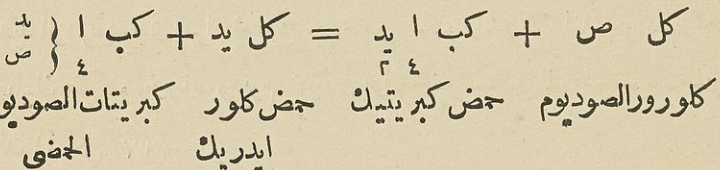 كل ص + كب ا٤ يد٢ = كل يد + كب ا٤ { يد ص
كلورور الصوديوم حمض كبريتيك حمض كلور كبريتات الصوديو
ايدريك الحمضى